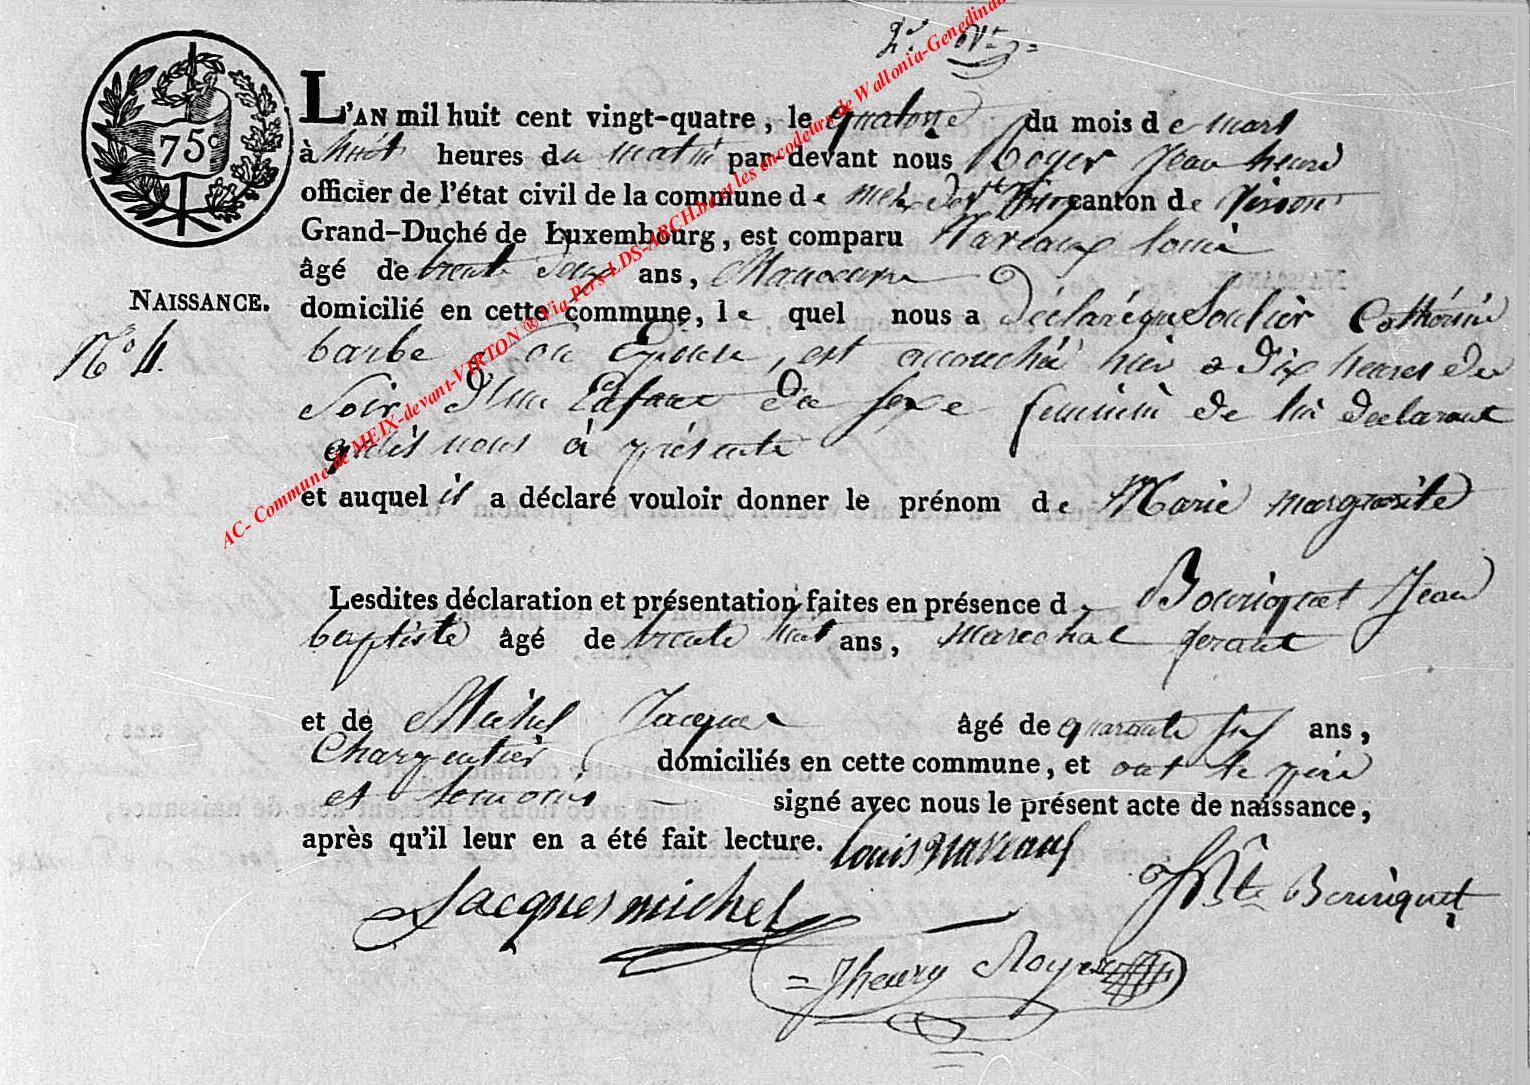 2.d
75c
L'AN mil huit cent vingt-quatre, le quatorze du mois de mars
à huit heures du matin par-devant nous Royer Jean henri
officier de l'état civil de la commune de meix devt Virton canton de Virton
Grand-Duché de Luxembourg, est comparu Naveaux louis
âgé de trente deux ans, Manoeuvre
NAISSANCE. domicilié en cette commune, le quel nous a déclaré que Soulier Cathérine
N° 4. barbe son Epouse, est accouchée hier a dix heures du
Soir d'un Enfant du sexe feminin de lui declarant
qu'il nous à présenté
et auquel il a déclaré vouloir donner le prénom de Marie marguerite
Lesdites déclaration et présentation faites en présence de Bouriquet Jean
baptiste âgé de trente huit ans, marechal ferant
et de Michel Jacques âgé de quarante six ans,
Charpentier, domiciliés en cette commune, et ont le père
et temoins signé avec nous le présent acte de naissance,
après qu'il leur en a été fait lecture. louis naveaux
Jacques michel JBte Bouriquet
Jhenry Royer
AC- Commune de MEIX-devant-VIRTON ® Via Pers-LDS-ARCH.be et les encodeurs de Wallonia-Genedinan